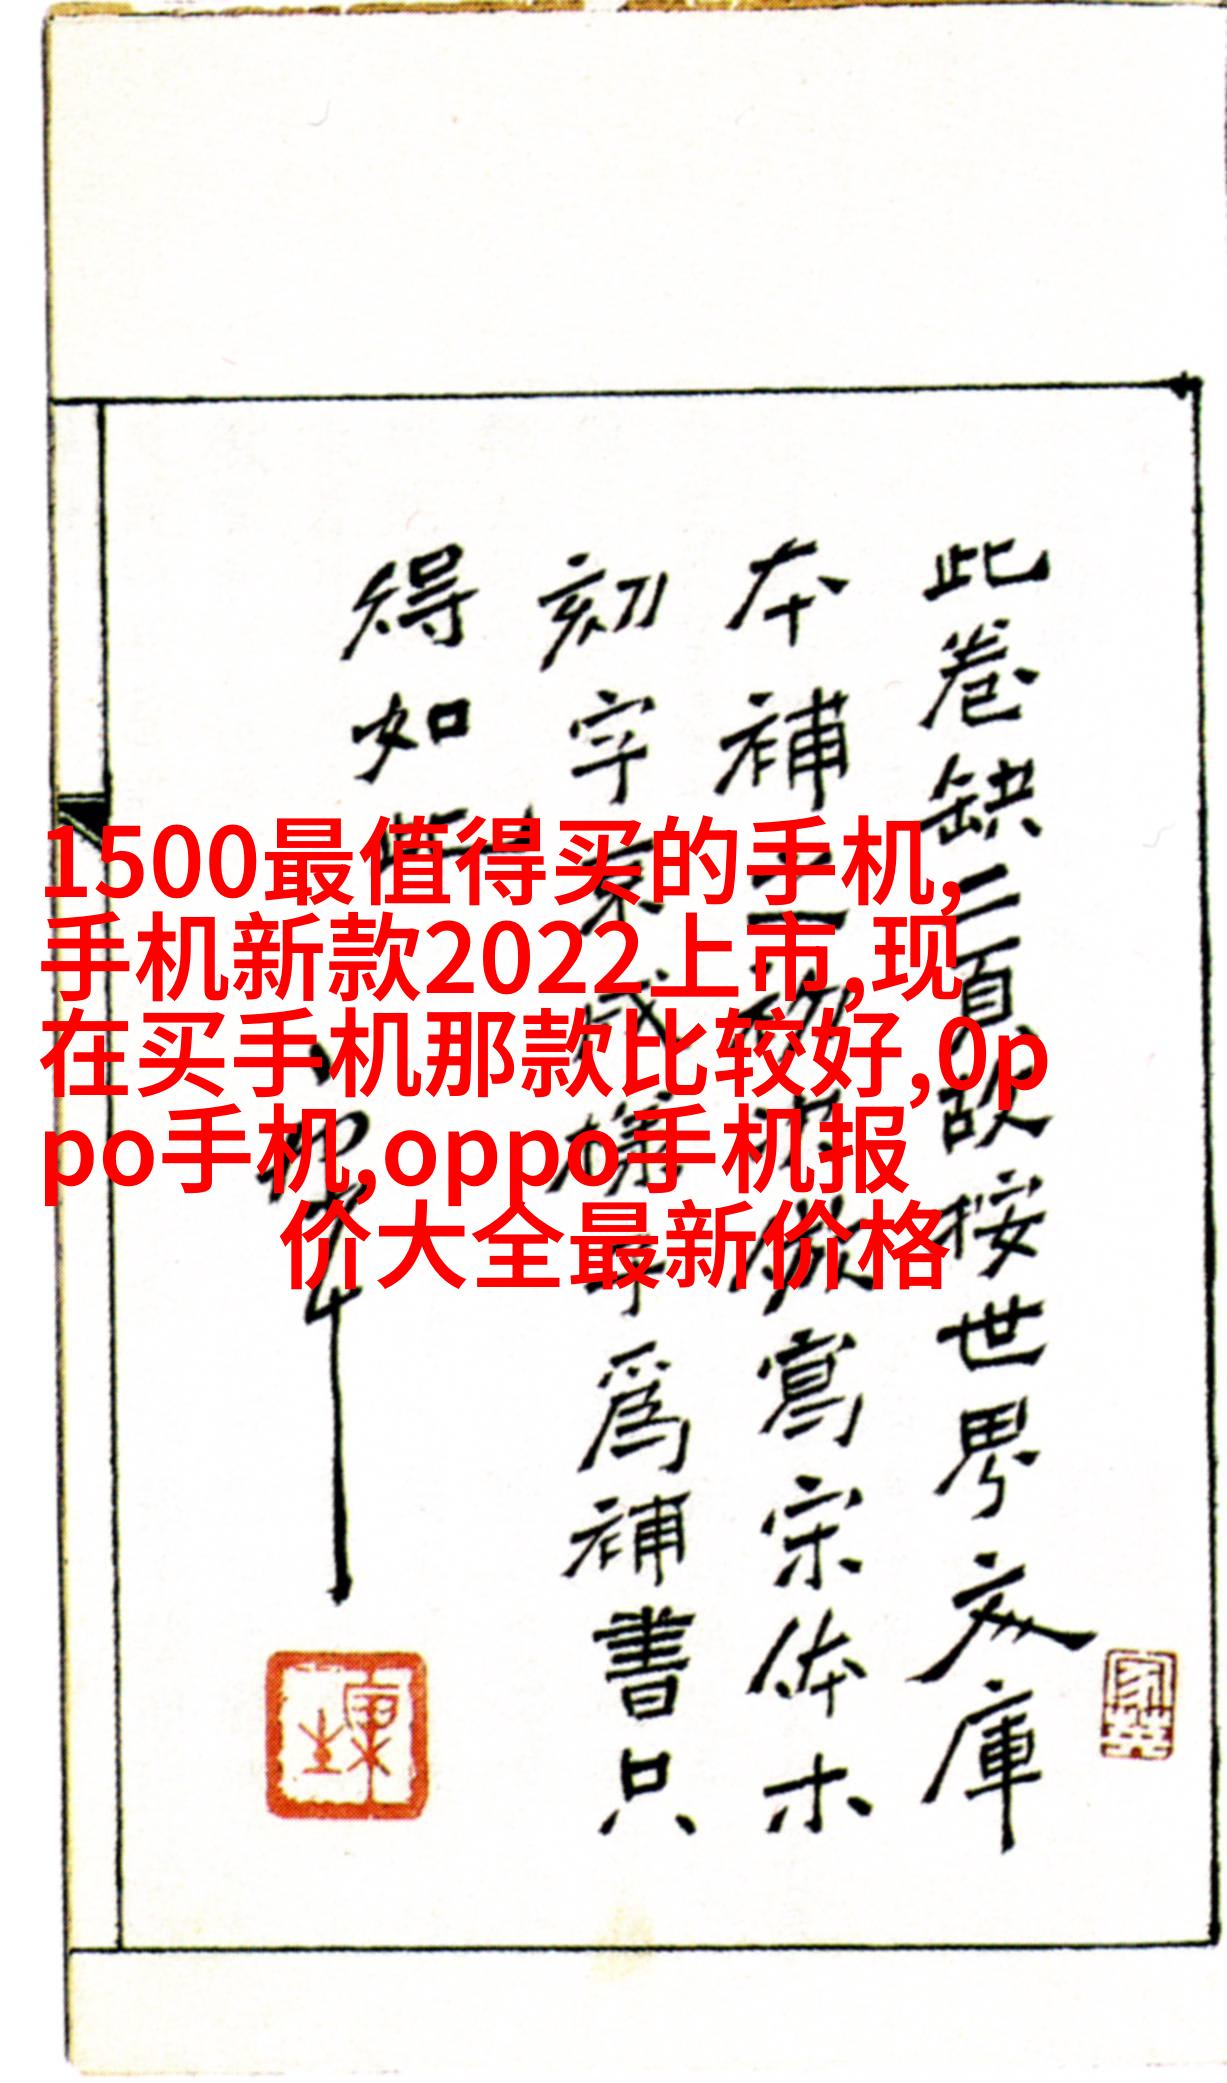 1500最值得买的手机,
手机新款2022上市,现
在买手机那款比较好,0p
po手机,oppo手机报
价大全最新价格
此卷缺二頁故按世界文庫
本補倣寫宋体木
刻字成樣爲補書只
得如此
康生